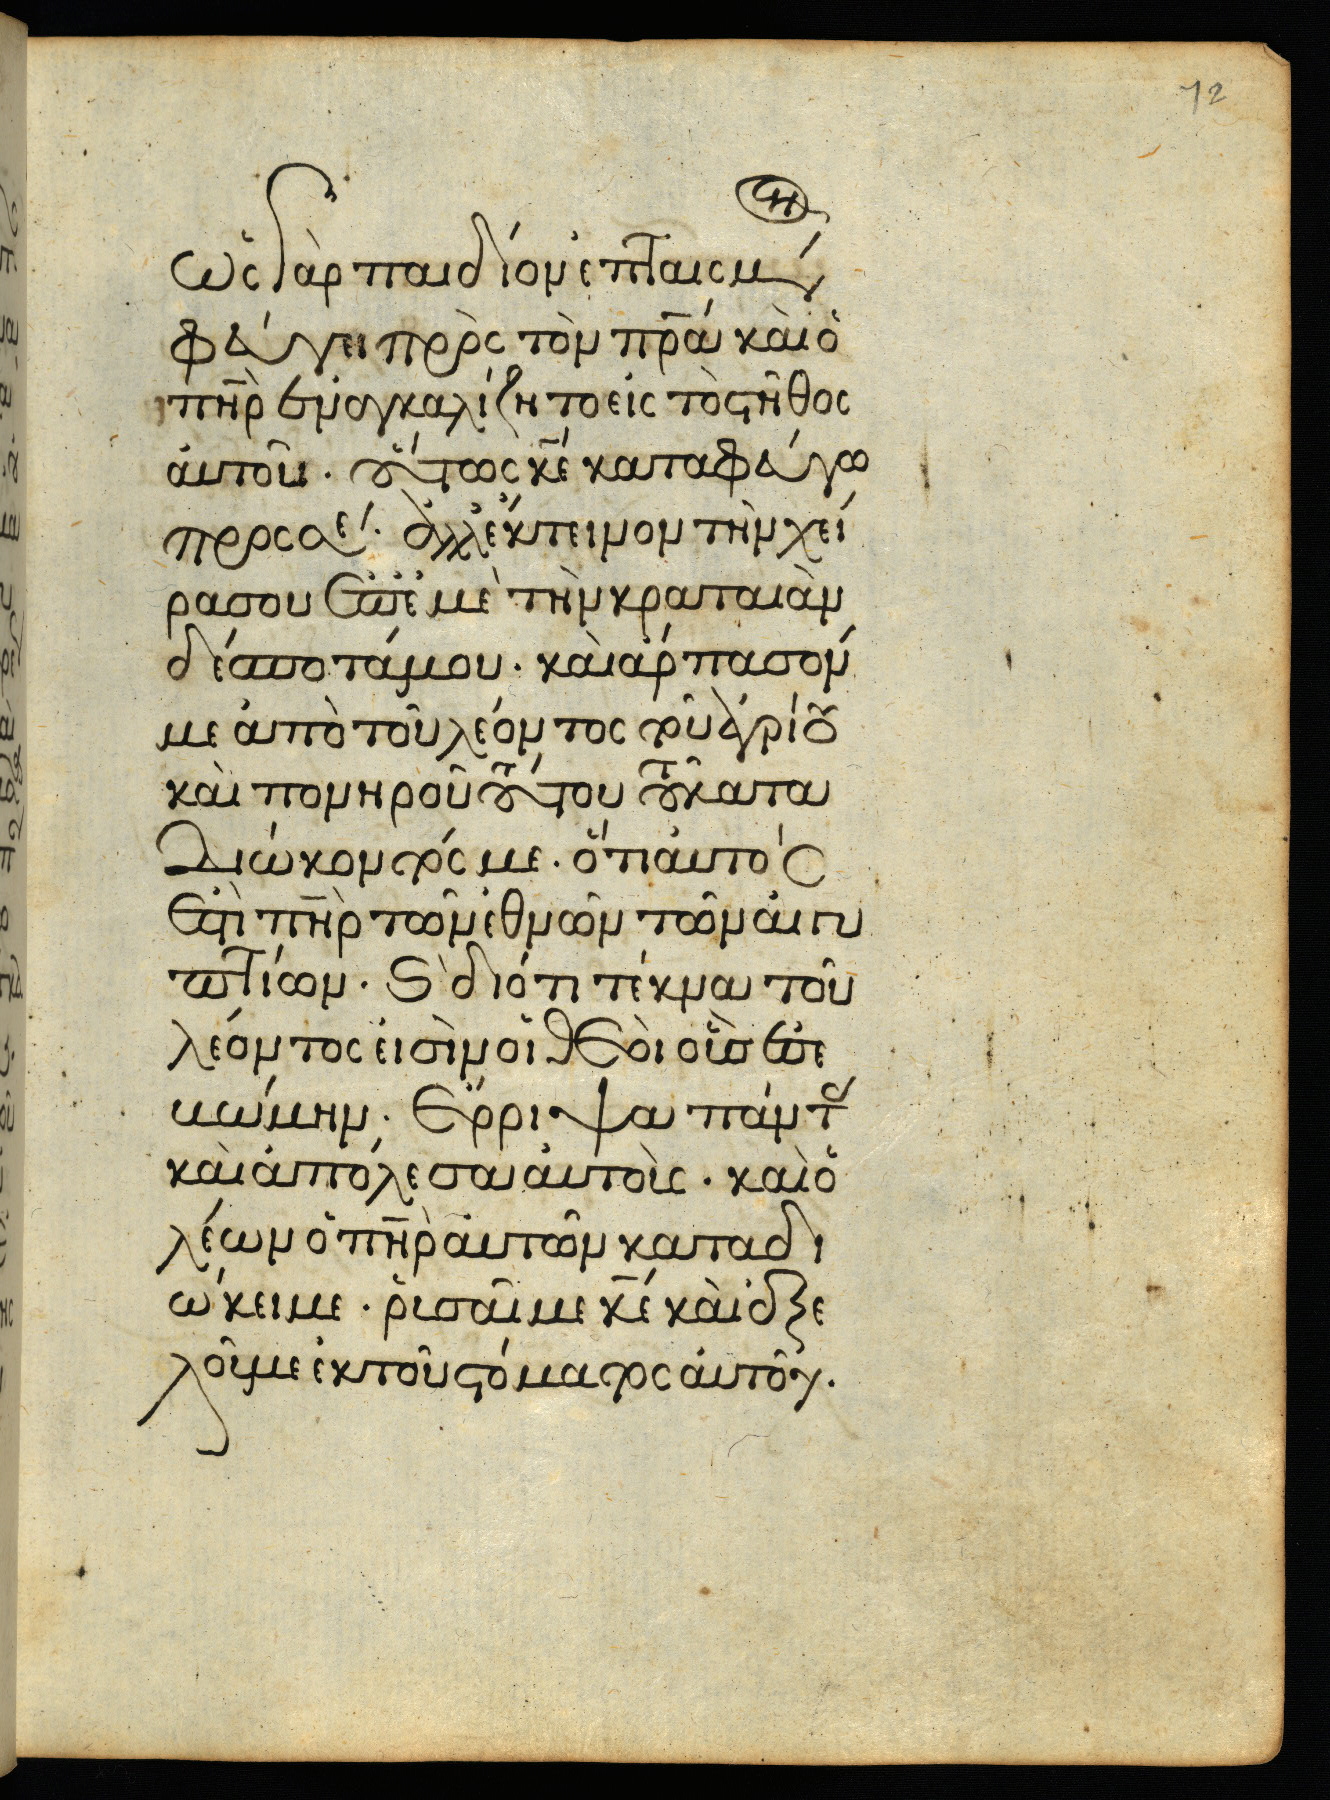 72
ὡς γὰρ παιδίον ἐπταισμέν
φεύγει πρὸς τὸν πρ̅α καὶ ὁ
πη̅ρ ἐναγκαλίζητο εἰς τὸ στῆθος
αὐτοῦ. οὕτως κ̅ε καταφεύγω
πρὸς σε. ἀλλ' ἔκτεινον τὴν χεί
ρα σου ἐπ' ἐμὲ τὴν κραταιὰν
δέσποτά μου. καὶ ἅρπασόν
με ἀπὸ τοῦ λέοντος τοῦ ἀγρίου
καὶ πονηροῦ τούτου τοῦ κατα
διώκοντός με. ὅτι αὐτὸς
ἐστὶ πη̅ρ τῶν ἐθνῶν τῶν αἰγυ
πτίων. καὶ διότι τέκνα τοῦ
λέοντος εἰσὶν οἱ θεοὶ οὓς ἐπε
κώμην. ἔρριψα πάντας
καὶ ἀπόλεσα αὐτοὶς. καὶ ὁ
λέων ὁ πη̅ρ αὐτῶν καταδι
ώκει με. ῥῦσαί με κ̅ε καὶ ἐξε
λοῦ με ἐκ τοῦ στόματος αὐτοῦ.